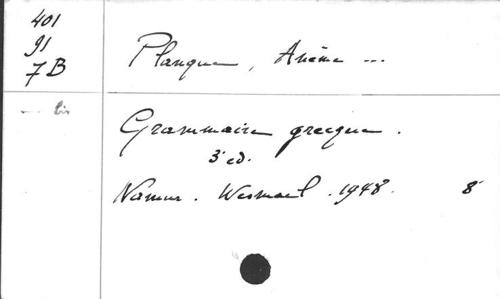 401
91
7B
Planque, Anène ...
... bis
Grammaire grecque.
3e ed.
Namur. Wesmael. 1948. 8°